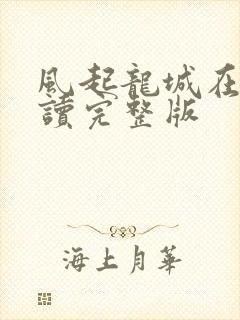 風起龍城在
讀完整版
海上月華